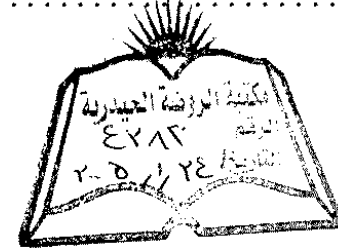 مكتبة الروضة الحيدرية
الرقم ٤٢٨٢
التاريخ ٢٤ / ١ / ٢٠٠٥